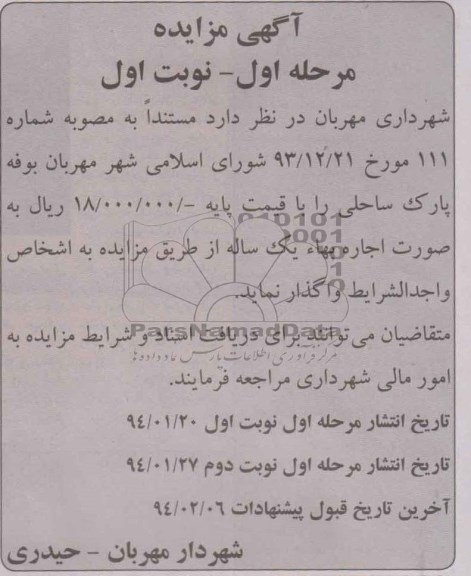 آگهی مزایده
مرحله اول- نوبت اول
شهرداری مهربان در نظر دارد مستنداً به مصوبه شماره
۱۱۱ مورخ ۹۳/۱۲/۲۱ شورای اسلامی شهر مهربان بوفه
پارک ساحلی را با قیمت پایه -/۱۸/۰۰۰/۰۰۰ ریال به
صورت اجاره بهاء یک ساله از طریق مزایده به اشخاص
واجدالشرایط واگذار نماید.
ParsNamadData
متقاضیان می‌توانند برای دریافت اسناد و شرایط مزایده به
مرکز فرآوری اطلاعات پارس نماد داده‌ها
امور مالی شهرداری مراجعه فرمایند.
تاریخ انتشار مرحله اول نوبت اول ۹٤/۰۱/۲۰
تاریخ انتشار مرحله اول نوبت دوم ۹٤/۰۱/۲۷
آخرین تاریخ قبول پیشنهادات ۹٤/۰۲/۰۶
شهردار مهربان - حیدری